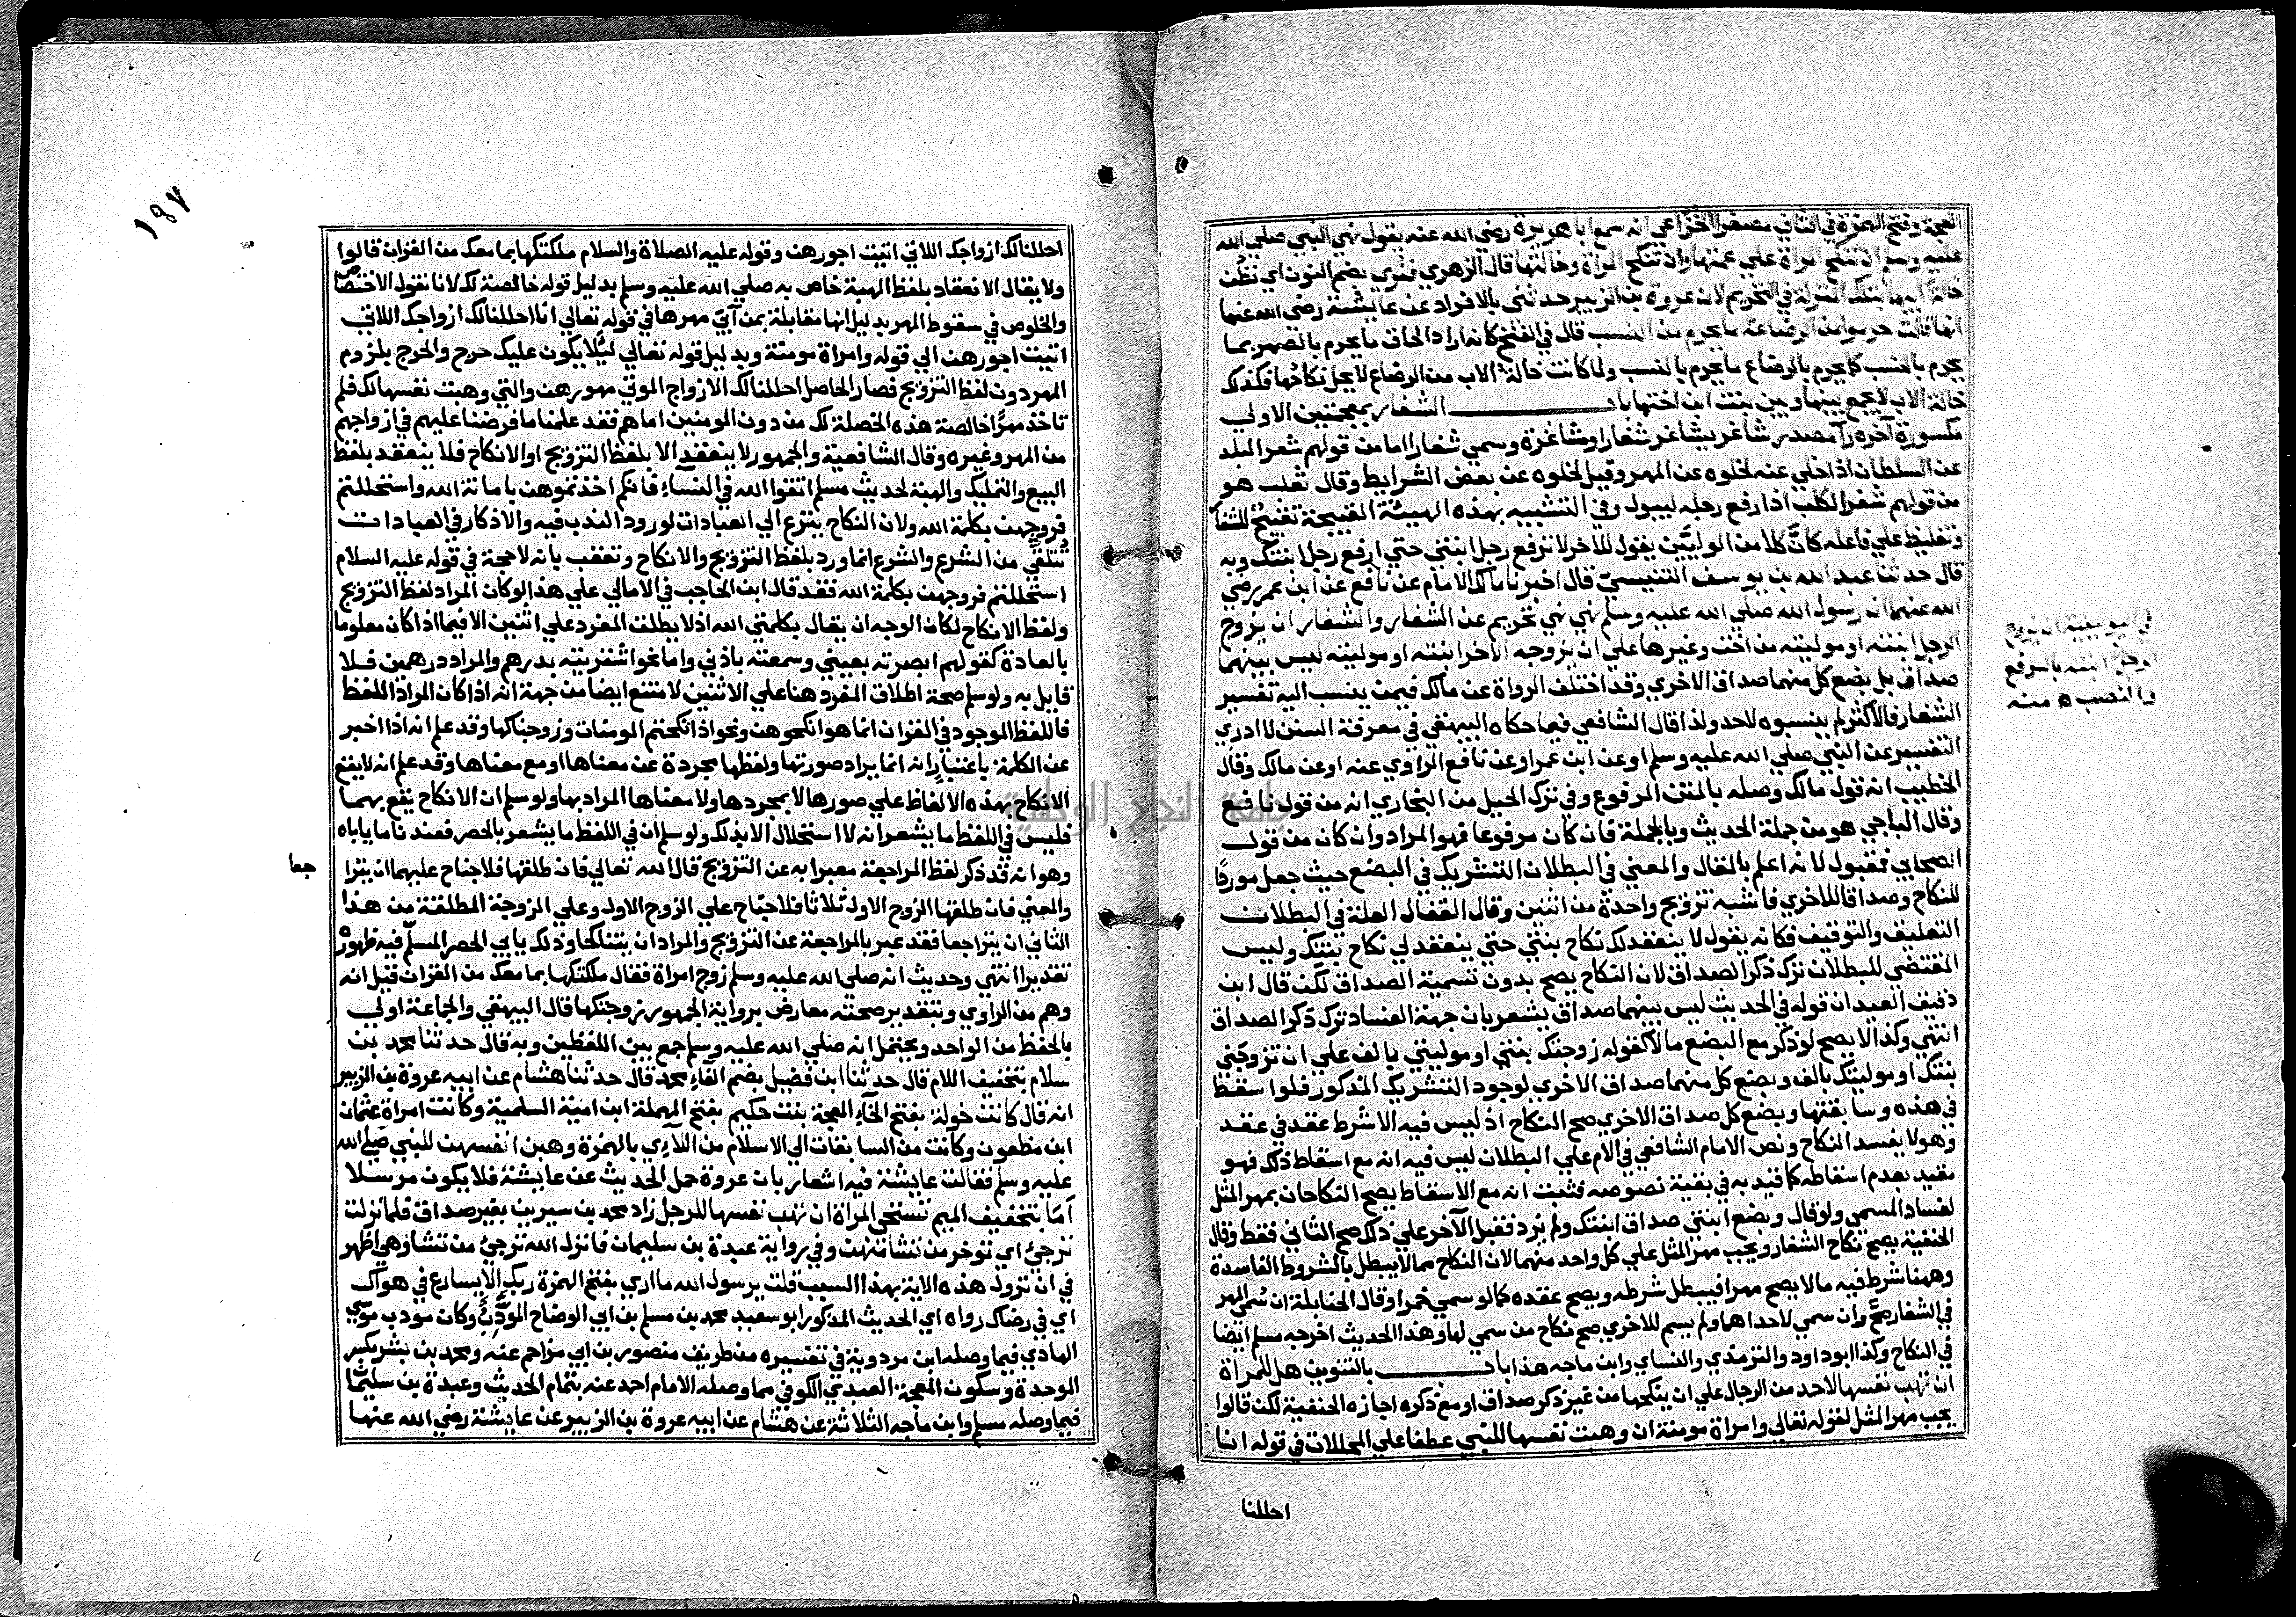 المعجمة وفتح الهمزة في الثاني مصغرا الخزاعي انه سمع ابا هريرة رضي الله عنه يقول نهي النبي صلي الله
عليه وسلم ان تنكح المراة علي عمتها وان تنكح المراة وخالتها قال الزهري فنري بضم النون اي نظن
خالة ابيها بتلك المنزلة في التحريم لان عروة بن الزبير حدثني بالافراد عن عايشة رضي الله عنها
انها قالت حرموا من الرضاعة ما يحرم من النسب قال في الفتح كانه اراد الحاق ما يحرم بالصهر بما
يحرم بالنسب كما يحرم بالرضاع ما يحرم بالنسب ولما كانت خالة الاب من الرضاع لا يحل نكاحها فكذلك
خالة الاب لا يجمع بينها وبين بنت ابن اختها باب الشغار بمعجمتين الاولي
مكسورة آخره رآ مصدر شاغر يشاغر شغارا ومشاغرة وسمي شغارا اما من قولهم شغر البلد
عن السلطان اذا خلي عنه لخلوه عن المهر وقيل لخلوه عن بعض الشرايط وقال ثعلب هو
من قولهم شغر الكلب اذا رفع رجله ليبول وفي التشبيه بهذه الهيئة القبيحة تقبيح للشغار
وتغليظ علي فاعله كانّ كلا من الوليّين يقول للاخر لا ترفع رجل ابنتي حتي ارفع رجل ابنتك وبه
قال حدثنا عبد الله بن يوسف التنيسيّ قال اخبرنا مالك الامام عن نافع عن ابن عمر رضي
الله عنهما ان رسول الله صلي الله عليه وسلم نهي نهي تحريم عن الشغار والشغار ان يزوج
الرجل ابنته او موليته من اخت وغيرها علي ان يزوجه الآخر ابنته او موليته ليس بينهما
صداق بل بضع كل منهما صداق الاخري وقد اختلف الرواة عن مالك فيمن ينسب اليه تفسير
الشغار فالاكثر لم ينسبوه لاحد ولذا قال الشافعي فيما حكاه البيهقي في معرفة السنن لا ادري
التفسير عن النبي صلي الله عليه وسلم او عن ابن عمر او عن نافع الراوي عنه او عن مالك وقال
الخطيب انه قول مالك وصله بالمتن المرفوع وفي ترك الحيل من البخاري انه من قول نافع
وقال الباجي هو من جملة الحديث وبالجملة فان كان مرفوعا فهو المراد وان كان من قول
الصحابي فمقبول لانه اعلم بالمقال والمعني في البطلان التشريك في البضع حيث جعل موردا
للنكاح وصداقا للاخري فاشبه تزويج واحدة من اثنين وقال القفال العلة في البطلان
التعليق والتوقيف فكانه يقول لا ينعقد لك نكاح بنتي حتي ينعقد لي نكاح بنتك وليس
المقتضي للبطلان ترك ذكر الصداق لان النكاح يصح بدون تسمية الصداق لكن قال ابن
دقيق العيد ان قوله في الحديث ليس بينهما صداق يشعر بان جهة الفساد ترك ذكر الصداق
انتهي وكذا لا يصح لو ذكر مع البضع مالا كقوله زوجتك بنتي او موليتي بالف علي ان تزوجني
بنتك او موليتك بالف وبضع كل منهما صداق الاخري لوجود التشريك المذكور فلوا سقط
في هذه وسابقتها وبضع كل صداق الاخري صح النكاح اذ ليس فيه الا شرط عقد في عقد
وهو لا يفسد النكاح ونص الامام الشافعي في الام علي البطلان ليس فيه انه مع اسقاط ذلك فهو
مقيد بعدم اسقاطه كما قيد به في بقية نصوصه فثبت انه مع الاسقاط يصح النكاحان بمهر المثل
لفساد المسمي ولو قال وبضع ابنتي صداق ابنتك ولم يزد فقبل الآخر علي ذلك صح الثاني فقط وقال
الحنفية يصح نكاح الشغار ويجب مهر المثل علي كل واحد منهما لان النكاح مما لا يبطل بالشروط الفاسدة
وههنا شرط فيه ما لا يصح مهرا فيبطل شرطه ويصح عقده كما لو سمي خمرا وقال الحنابلة ان سُمي المهر
في الشغار صحّ وان سمي لاحداهما ولم يسم للاخري صح نكاح من سمي لها وهذا الحديث اخرجه مسلم ايضا
في النكاح وكذا ابو داود والترمذي والنساي وابن ماجه هذا باب بالتنوين هل للمراة
ان تهب نفسها لاحد من الرجال علي ان ينكحها من غير ذكر صداق او مع ذكره اجازه الحنفية لكن قالوا
يجب مهر المثل لقوله تعالي وامراة مومنة ان وهبت نفسها للنبي عطفا علي المحللات في قوله انا
احللنا
في اليونينية ان يزوج
الرجل ابنته بالرفع
والنصب ه منه
١٩٧
احللنا لك ازواجك اللاتي اتيت اجورهن وقوله عليه الصلاة والسلام ملكتكها بما معك من القران قالوا
ولا يقال الانعقاد بلفظ الهبة خاص به صلي الله عليه وسلم بدليل قوله خالصة لك لانا نقول الاختصاص
والخلوص في سقوط المهر بدليل انها مقابلة بمن آتيَ مهرها في قوله تعالي انا احللنا لك ازواجك اللاتي
اتيت اجورهن الي قوله وامراة مومنة وبدليل قوله تعالي ليُلا يكون عليك حرج والحرج بلزوم
المهر دون لفظ التزويج فصار الحاصل احللنا لك الازواج الموتي مهورهن والتي وهبت نفسها لك فلم
تاخذ مهرًا خالصة هذه الخصلة لك من دون المومنين اما هم فقد علمنا ما فرضنا عليهم في ازواجهم
من المهر وغيره وقال الشافعية والجمهور لا ينعقد الا بلفظ التزويج او الانكاح فلا ينعقد بلفظ
البيع والتمليك والهبة لحديث مسلم اتقوا الله في النساء فانكم اخذتموهن بامانة الله واستحللتم
فروجهن بكلمة الله ولان النكاح ينزع الي العبادات لورود الندب فيه والاذكار في العبادات
تُتلقيَّ من الشرع والشرع انما ورد بلفظ التزويج والانكاح وتعقب بانه لا حجة في قوله عليه السلام
استحللتم فروجهن بكلمة الله فقد قال ابن الحاجب في الامالي علي هذا لو كان المراد لفظ التزويج
ولفظ الانكاح لكان الوجه ان يقال بكلمتي الله اذ لا يطلق المفرد علي اثنين الا فيما اذا كان معلوما
بالعادة كقولهم ابصرته بعيني وسمعته باذني واما نحو اشتريته بدرهم والمراد درهمين فلا
قايل به ولو سلم صحة اطلاق المفرد هنا علي الاثنين لامتنع ايضا من جهة انه اذا كان المراد اللفظ
فاللفظ الموجود في القران انما هو انكحوهن ونحو اذا نكحتم المومنات وزوجناكها وقد علم انه اذا اخبر
عن الكلمة باعتبار انه انما يراد صورتها ولفظها مجردة عن معناها او مع معناها وقد علم انه لا يقع
الانكاح بهذه الالفاظ علي صورها لا بمجردها ولا معناها المراد بها ولو سلم ان الانكاح يقع بهما
فليس في اللفظ ما يشعر انه لا استحلال الا بذلك ولو سلم ان في اللفظ ما يشعر بالحصر فعندنا ما ياباه
وهو انه قد ذكر لفظ المراجعة معبرا به عن التزويج قال الله تعالي فان طلقها فلا جناح عليهما ان يترا
جعا
والمعني فان طلقها الزوج الاول ثلاثا فلا جناح علي الزوج الاول وعلي الزوجة المطلقة من هذا
الثاني ان يتراجعا فقد عبر بالمراجعة عن التزويج والمراد ان يتناكحا وذلك يابي الحصر المسلَّم فيه ظهوره
تقديرا انتهي وحديث انه صلي الله عليه وسلم زوج امراة فقال ملكتكها بما معك من القران قيل انه
وهم من الراوي وبتقدير صحته معارض برواية الجمهور زوجتكها قال البيهقي والجماعة اولي
بالحفظ من الواحد ويحتمل انه صلي الله عليه وسلم جمع بين اللفظين وبه قال حدثنا محمد بن
سلام بتخفيف اللام قال حدثنا ابن فضيل بضم الفاء محمد قال حدثنا هشام عن ابيه عروة بن الزبير
انه قال كانت خولة بفتح الخاء المعجمة بنت حكيم بفتح المهملة ابن امية السلمية وكانت امراة عثمان
ابن مظعون وكانت من السابقات الي الاسلام من اللآءي بالهمزة وهبن انفسهن للنبي صلي الله
عليه وسلم فقالت عايشة فيه اشعار بان عروة حمل الحديث عن عايشة فلا يكون مرسلا
اَمَا بتخفيف الميم تستحي المراة ان تهب نفسها للرجل زاد محمد بن سيرين بغير صداق فلما نزلت
ترجئ اي توخر من تشا منهن وفي رواية عبدة بن سليمان فانزل الله ترجئ من تشا وهي اظهر
في ان نزول هذه الاية بهذا السبب قلت يرسول الله ما اري بفتح الهمزة ربك الا يسارع في هواك
اي في رضاك رواه اي الحديث المذكور ابو سعيد محمد بن مسلم بن ابي الوضاح المودّب وكان مودب موسي
الهادي فيما وصله ابن مردوية في تفسيره من طريق منصور بن ابي مزاحم عنه ومحمد بن بشر بكسر
الموحدة وسكون المعجمة العبدي الكوفي مما وصله الامام احمد عنه بتمام الحديث وعبدة بن سليمان
فيما وصله مسلم وابن ماجه الثلاثة عن هشام عن ابيه عروة بن الزبير عن عايشة رضي الله عنها
جامعة النجاح الوطنية